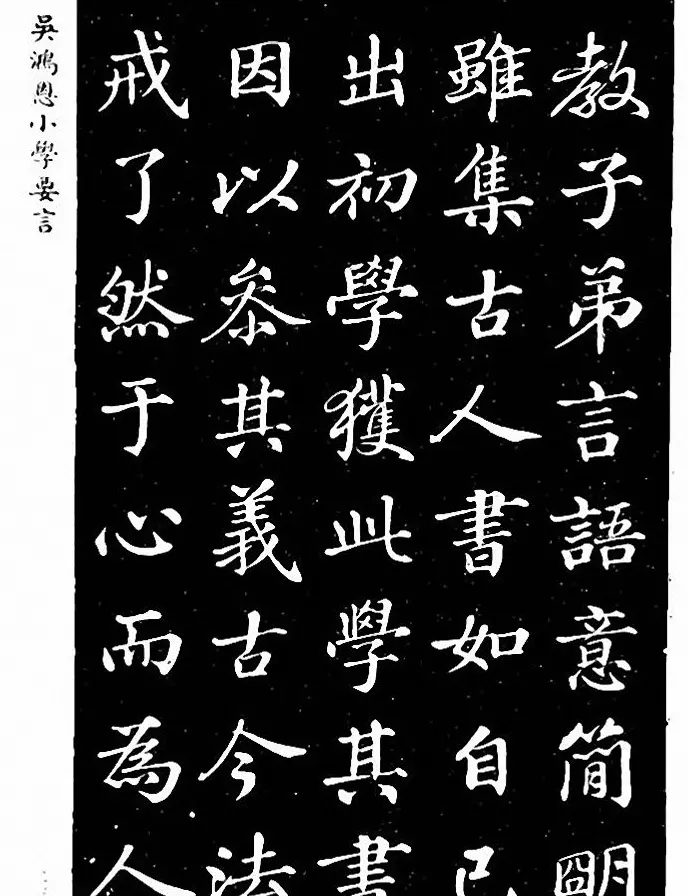 教子弟言語意簡明
雖集古人書如自己
出初學獲此學其書
因以叅其義古今法
戒了然于心而為人
吳鴻恩小學要言